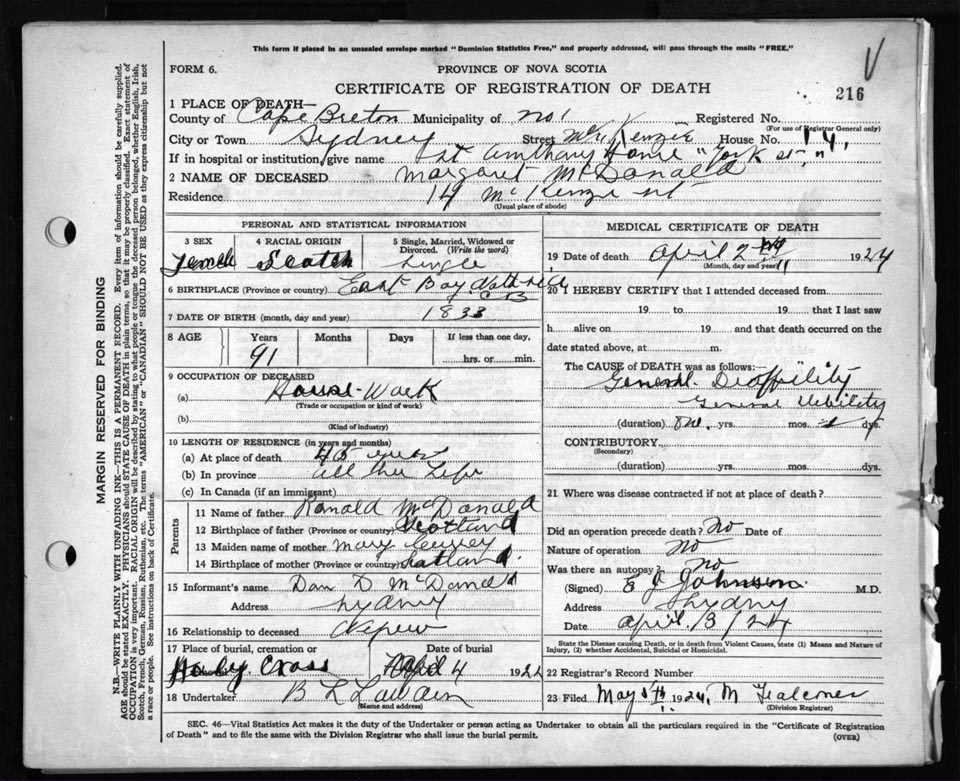 This form if placed in an unsealed envelope marked "Dominion Statistics Free," and properly addressed, will pass through the mails "FREE."
FORM 6.
PROVINCE OF NOVA SCOTIA
V
CERTIFICATE OF REGISTRATION OF DEATH
216
1 PLACE OF DEATH—
County of Cape Breton Municipality of No 1 Registered No.
(For use of Registrar General only)
City or Town Sydney Street McKenzie House No. 14,
If in hospital or institution, give name St Anthony Home "York st,"
2 NAME OF DECEASED Margaret McDonald
Residence 14 McKenzie st
(Usual place of abode)
PERSONAL AND STATISTICAL INFORMATION
3 SEX 4 RACIAL ORIGIN 5 Single, Married, Widowed or Divorced. (Write the word)
Female Scotch Single
6 BIRTHPLACE (Province or country) East Bay North side
C B
7 DATE OF BIRTH (month, day and year) 1833
8 AGE Years Months Days If less than one day,
91 hrs. or min.
9 OCCUPATION OF DECEASED
(a) House-Work
(Trade or occupation or kind of work)
(b)
(Kind of industry)
10 LENGTH OF RESIDENCE (in years and months)
(a) At place of death 45 years
(b) In province all her Life
(c) In Canada (if an immigrant)
Parents
11 Name of father Ranald McDonald
12 Birthplace of father (Province or country) Scotland
13 Maiden name of mother Mary
14 Birthplace of mother (Province or country) Scotland
15 Informant's name Dan D McDonald
Address Sydney
16 Relationship to deceased Nepew
17 Place of burial, cremation or Date of burial
Holy Cross April 4 192
18 Undertaker B L
(Name and address)
MEDICAL CERTIFICATE OF DEATH
19 Date of death April 2nd 1924
(Month, day and year)
20 I HEREBY CERTIFY that I attended deceased from
19 to 19 that I last saw
h alive on 19 and that death occurred on the
date stated above, at m.
The CAUSE OF DEATH was as follows:
General
General Debility
(duration) yrs. mos. dys.
CONTRIBUTORY
(Secondary)
(duration) yrs. mos. dys.
21 Where was disease contracted if not at place of death?
Did an operation precede death? No Date of
Nature of operation No
Was there an autopsy? No
(Signed) E J Johnson M.D.
Address Sydney
Date April 3/24
State the Disease causing Death, or in death from Violent Causes, state (1) Means and Nature of Injury, (2) whether Accidental, Suicidal or Homicidal.
22 Registrar's Record Number
23 Filed May 5th 1924, M Falconer
(Division Registrar)
SEC. 46—Vital Statistics Act makes it the duty of the Undertaker or person acting as Undertaker to obtain all the particulars required in the "Certificate of Registration
of Death" and to file the same with the Division Registrar who shall issue the burial permit.
(OVER)
MARGIN RESERVED FOR BINDING
N.B.—WRITE PLAINLY WITH UNFADING INK.—THIS IS A PERMANENT RECORD. Every item of information should be carefully supplied.
AGE should be stated EXACTLY. PHYSICIANS should STATE CAUSE OF DEATH in plain terms, so that it may be properly classified. Exact statement of
OCCUPATION is very important. RACIAL ORIGIN will be described by stating to what people or tongue the deceased person belonged, whether English, Irish,
Scotch, French, German, Russian, Ruthenian, etc. The terms "AMERICAN" or "CANADIAN" SHOULD NOT BE USED as they express citizenship but not
a race or people. See instructions on back of Certificate.